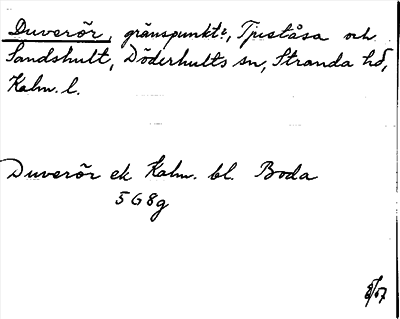 Duverör, gränspunkt, Tjuståsa och
Sandshult, Döderhults sn, Stranda hd,
Kalm. l.
Duverör ek Kalm. bl. Boda
5G8g